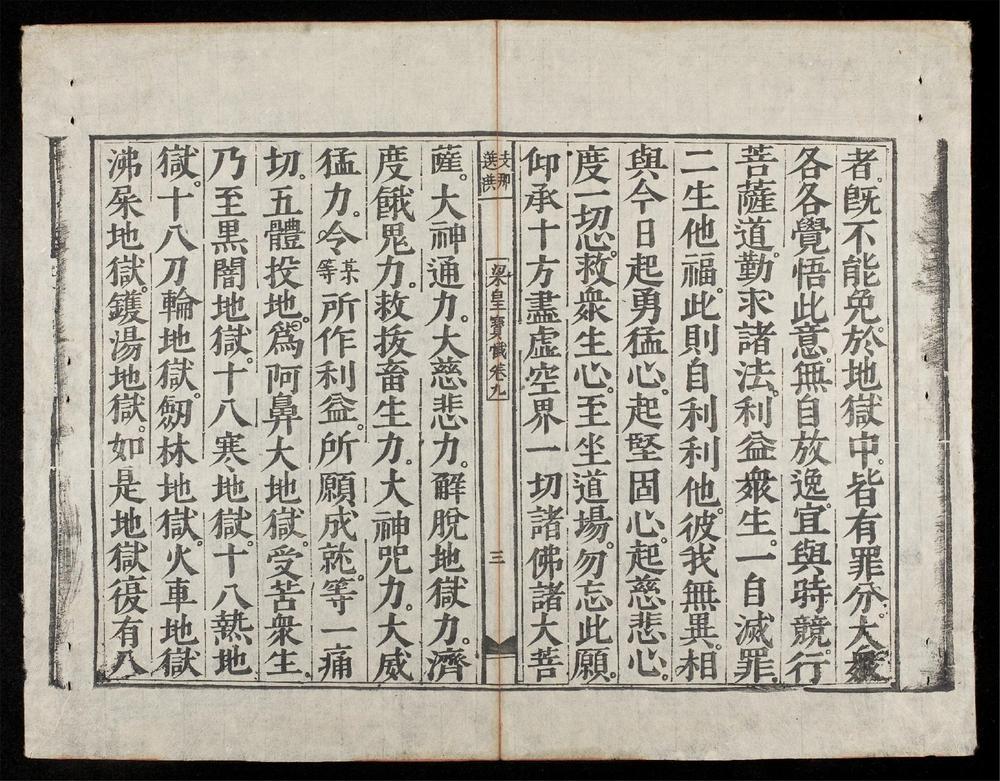 者。旣不能免。於地獄中。皆有罪分。大衆
各各覺悟此意。無自放逸。宜與時競。行
菩薩道。勤求諸法。利益衆生。一自滅罪。
二生他福。此則自利利他。彼我無異。相
與今日起勇猛心。起堅固心。起慈悲心。
度一切心。救衆生心。至坐道場。勿忘此願。
仰承十方盡虛空界一切諸佛諸大菩
支那
選集
梁皇寶懺卷九
三
薩。大神通力。大慈悲力。解脫地獄力。濟
度餓鬼力。救拔畜生力。大神咒力。大威
猛力。令某等所作利益。所願成就。等一痛
切。五體投地。爲阿鼻大地獄。受苦衆生。
乃至黑闇地獄。十八寒地獄。十八熱地
獄。十八刀輪地獄。劒林地獄。火車地獄
沸屎地獄。鑊湯地獄。如是地獄復有八